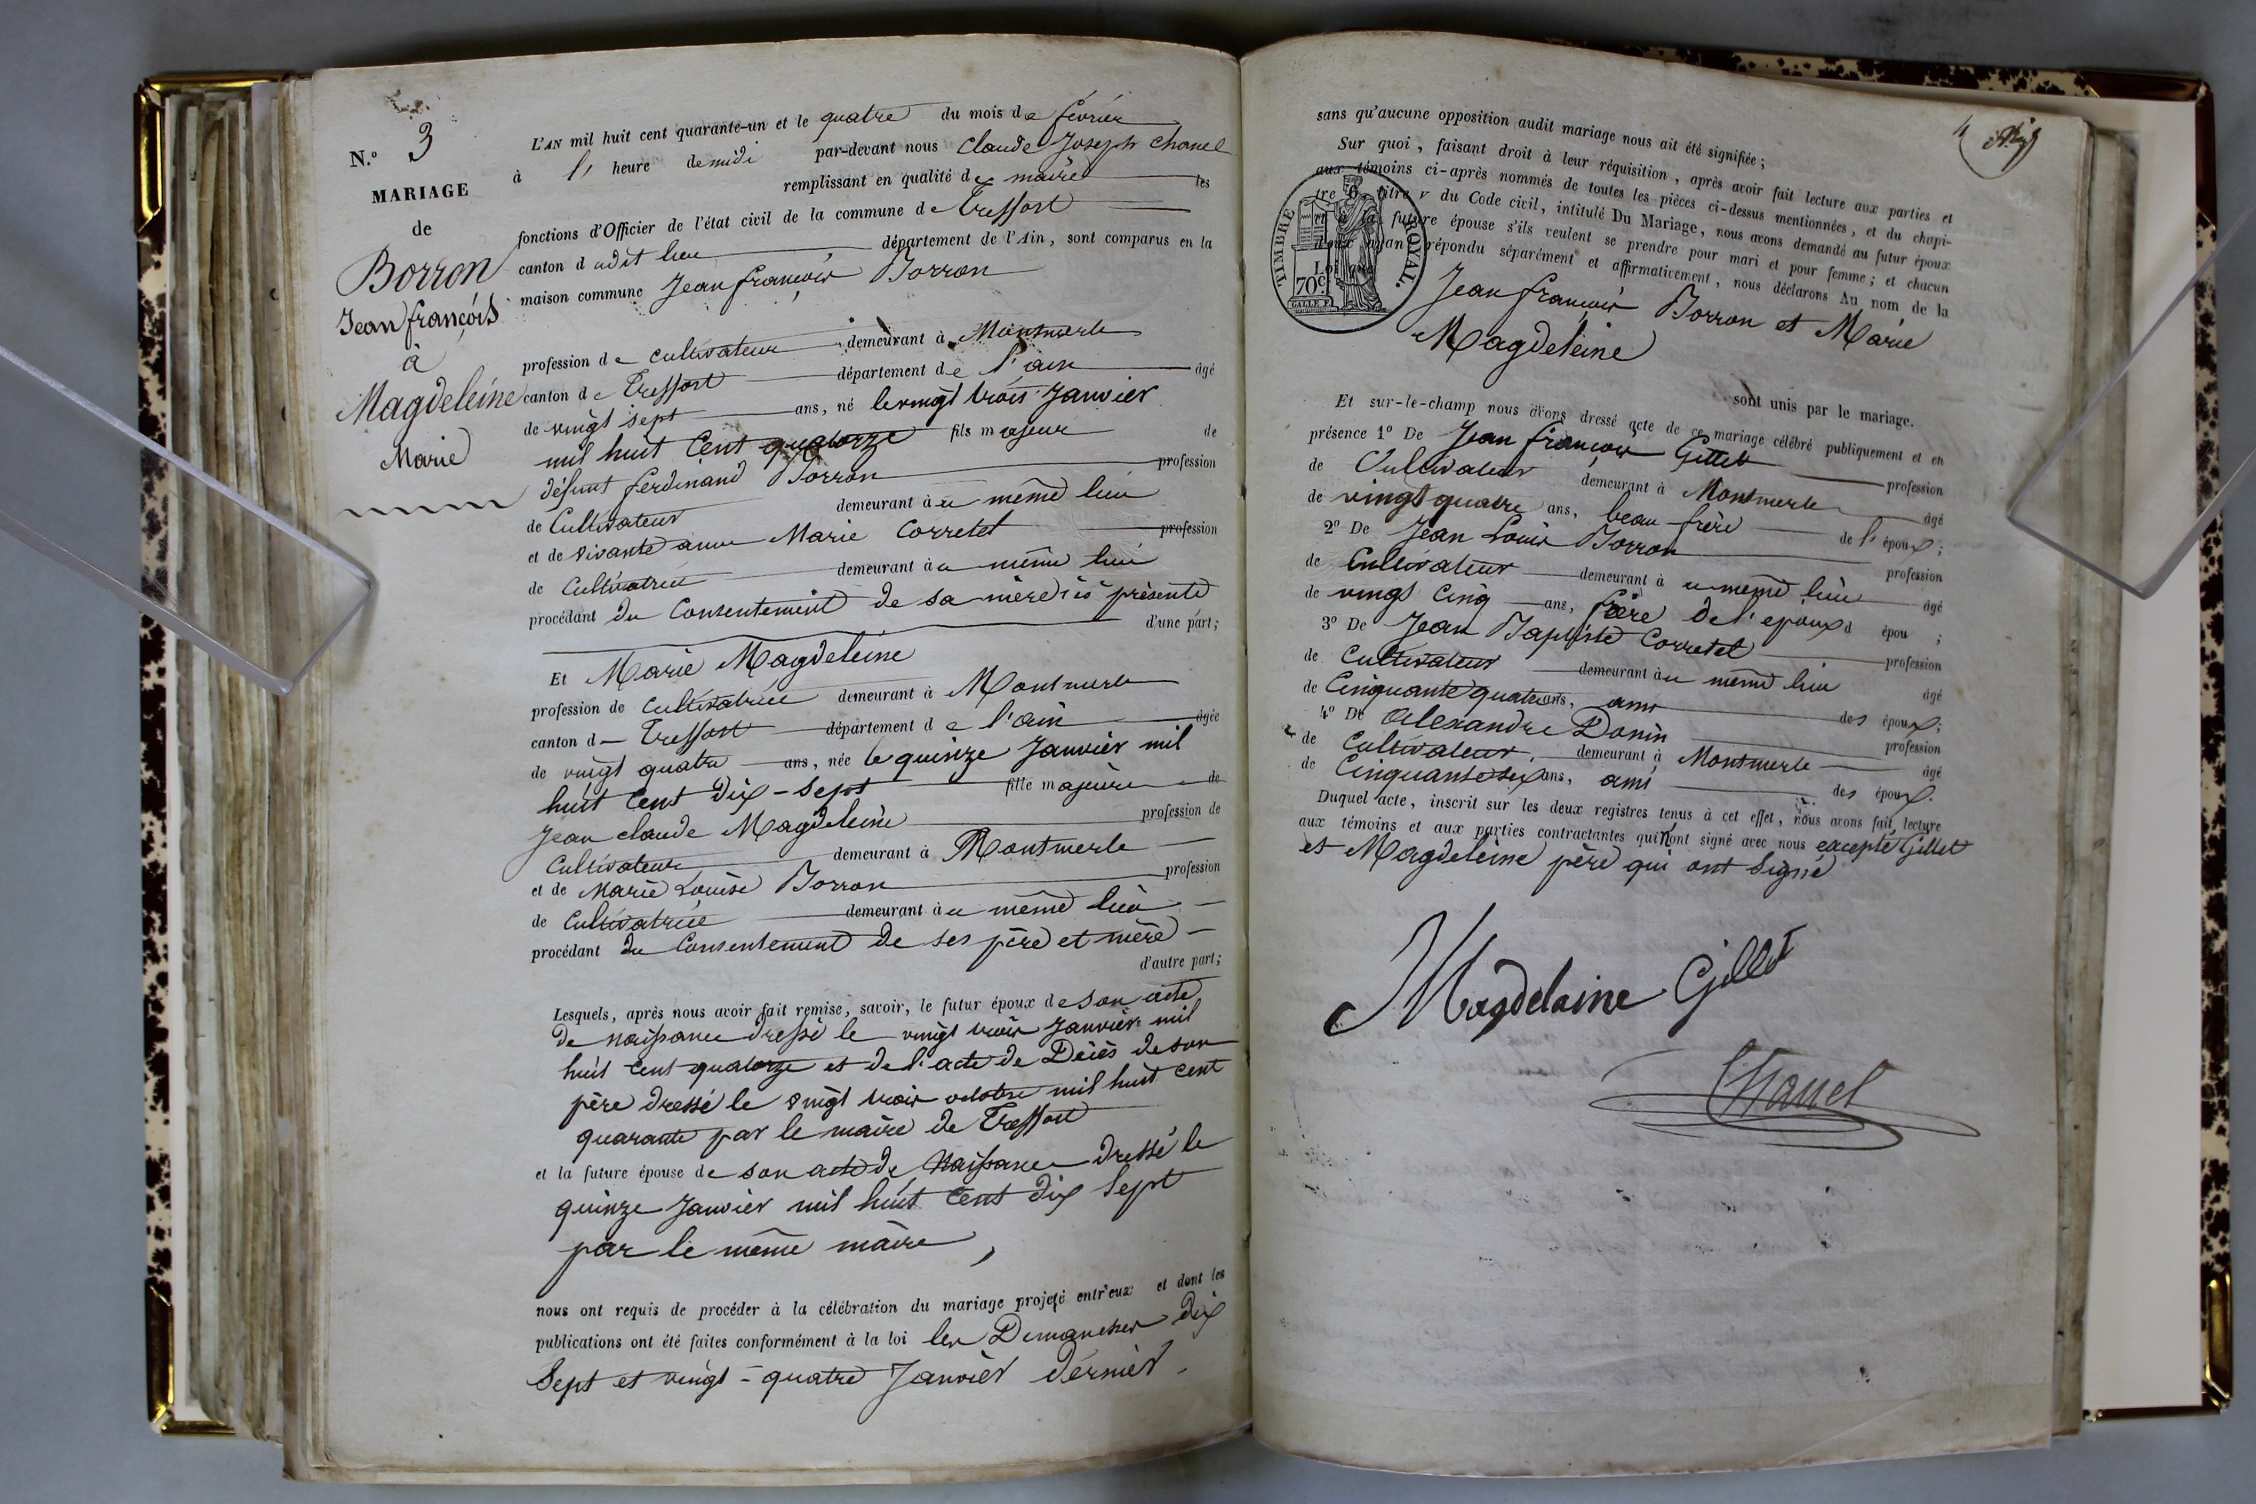 N.° 3
MARIAGE
de
Borron
Jean françois
à
Magdeleine
Marie
L'AN mil huit cent quarante-un et le quatre du mois de février
à l' heure de midi par-devant nous Claude Joseph Chanel
remplissant en qualité de maire les
fonctions d'Officier de l'état civil de la commune de Treffort
canton d udit lieu département de l'Ain, sont comparus en la
maison commune Jean françois Borron
profession de cultivateur demeurant à Montmerle
canton de Treffort département de l'ain âgé
de vingt sept ans, né le vingt trois Janvier
mil huit Cent quatorze fils majeur de
défunt ferdinand Borron profession
de Cultivateur demeurant à u même lieu
et de vivante anne Marie Corretel profession
de Cultivatrice demeurant à u même lieu
procédant du Consentement de sa mère ici présente
d'une part;
Et Marie Magdeleine
profession de cultivatrice demeurant à Montmerle
canton d Treffort département de l'ain âgée
de vingt quatre ans, née le quinze Janvier mil
huit Cent dix-sept fille majeure de
Jean claude Magdeleine profession de
Cultivateur demeurant à Montmerle
et de Marie Louise Borron profession
de Cultivatrice demeurant à u même lieu
procédant du Consentement de ses père et mère
d'autre part;
Lesquels, après nous avoir fait remise, savoir, le futur époux de son acte
de naissance dressé le vingt trois Janvier mil
huit Cent quatorze et de l'acte de Décès de son
père dressé le vingt trois octobre mil huit cent
quarante par le maire de Treffort
et la future épouse de son acte de Naissance dressé le
quinze Janvier mil huit Cent dix Sept
par le même maire,
nous ont requis de procéder à la célébration du mariage projeté entr'eux et dont les
publications ont été faites conformément à la loi les Dimanches dix
Sept et vingt-quatre Janvier dernier.
4
sans qu'aucune opposition audit mariage nous ait été signifiée;
Sur quoi, faisant droit à leur réquisition, après avoir fait lecture aux parties et
aux témoins ci-après nommés de toutes les pièces ci-dessus mentionnées, et du chapi-
tre 6, titre v du Code civil, intitulé Du Mariage, nous avons demandé au futur époux
et à la future épouse s'ils veulent se prendre pour mari et pour femme; et chacun
d'eux ayant répondu séparément et affirmativement, nous déclarons Au nom de la
Loi que
TIMBRE ROYAL.
70c
Jean françois Borron et Marie
Magdeleine
sont unis par le mariage.
Et sur-le-champ nous avons dressé acte de ce mariage célébré publiquement et en
présence 1° De Jean françois Gillet profession
de Cultivateur demeurant à Montmerle âgé
de vingt quatre ans, beau-frère de l' époux;
2° De Jean Louis Borron profession
de Cultivateur demeurant à u même lieu âgé
de vingt Cinq ans, frère de l'époux d épou ;
3° De Jean Baptiste Corretel profession
de Cultivateur demeurant à u même lieu âgé
de Cinquante quatre ans, ami des époux;
4° De Alexandre Donin profession
de Cultivateur, demeurant à Montmerle âgé
de Cinquante six ans, ami des époux.
Duquel acte, inscrit sur les deux registres tenus à cet effet, nous avons fait lecture
aux témoins et aux parties contractantes qui n'ont signé avec nous excepté Gillet
et Magdeleine père qui ont Signé
Magdelaine Gillet
Chanel